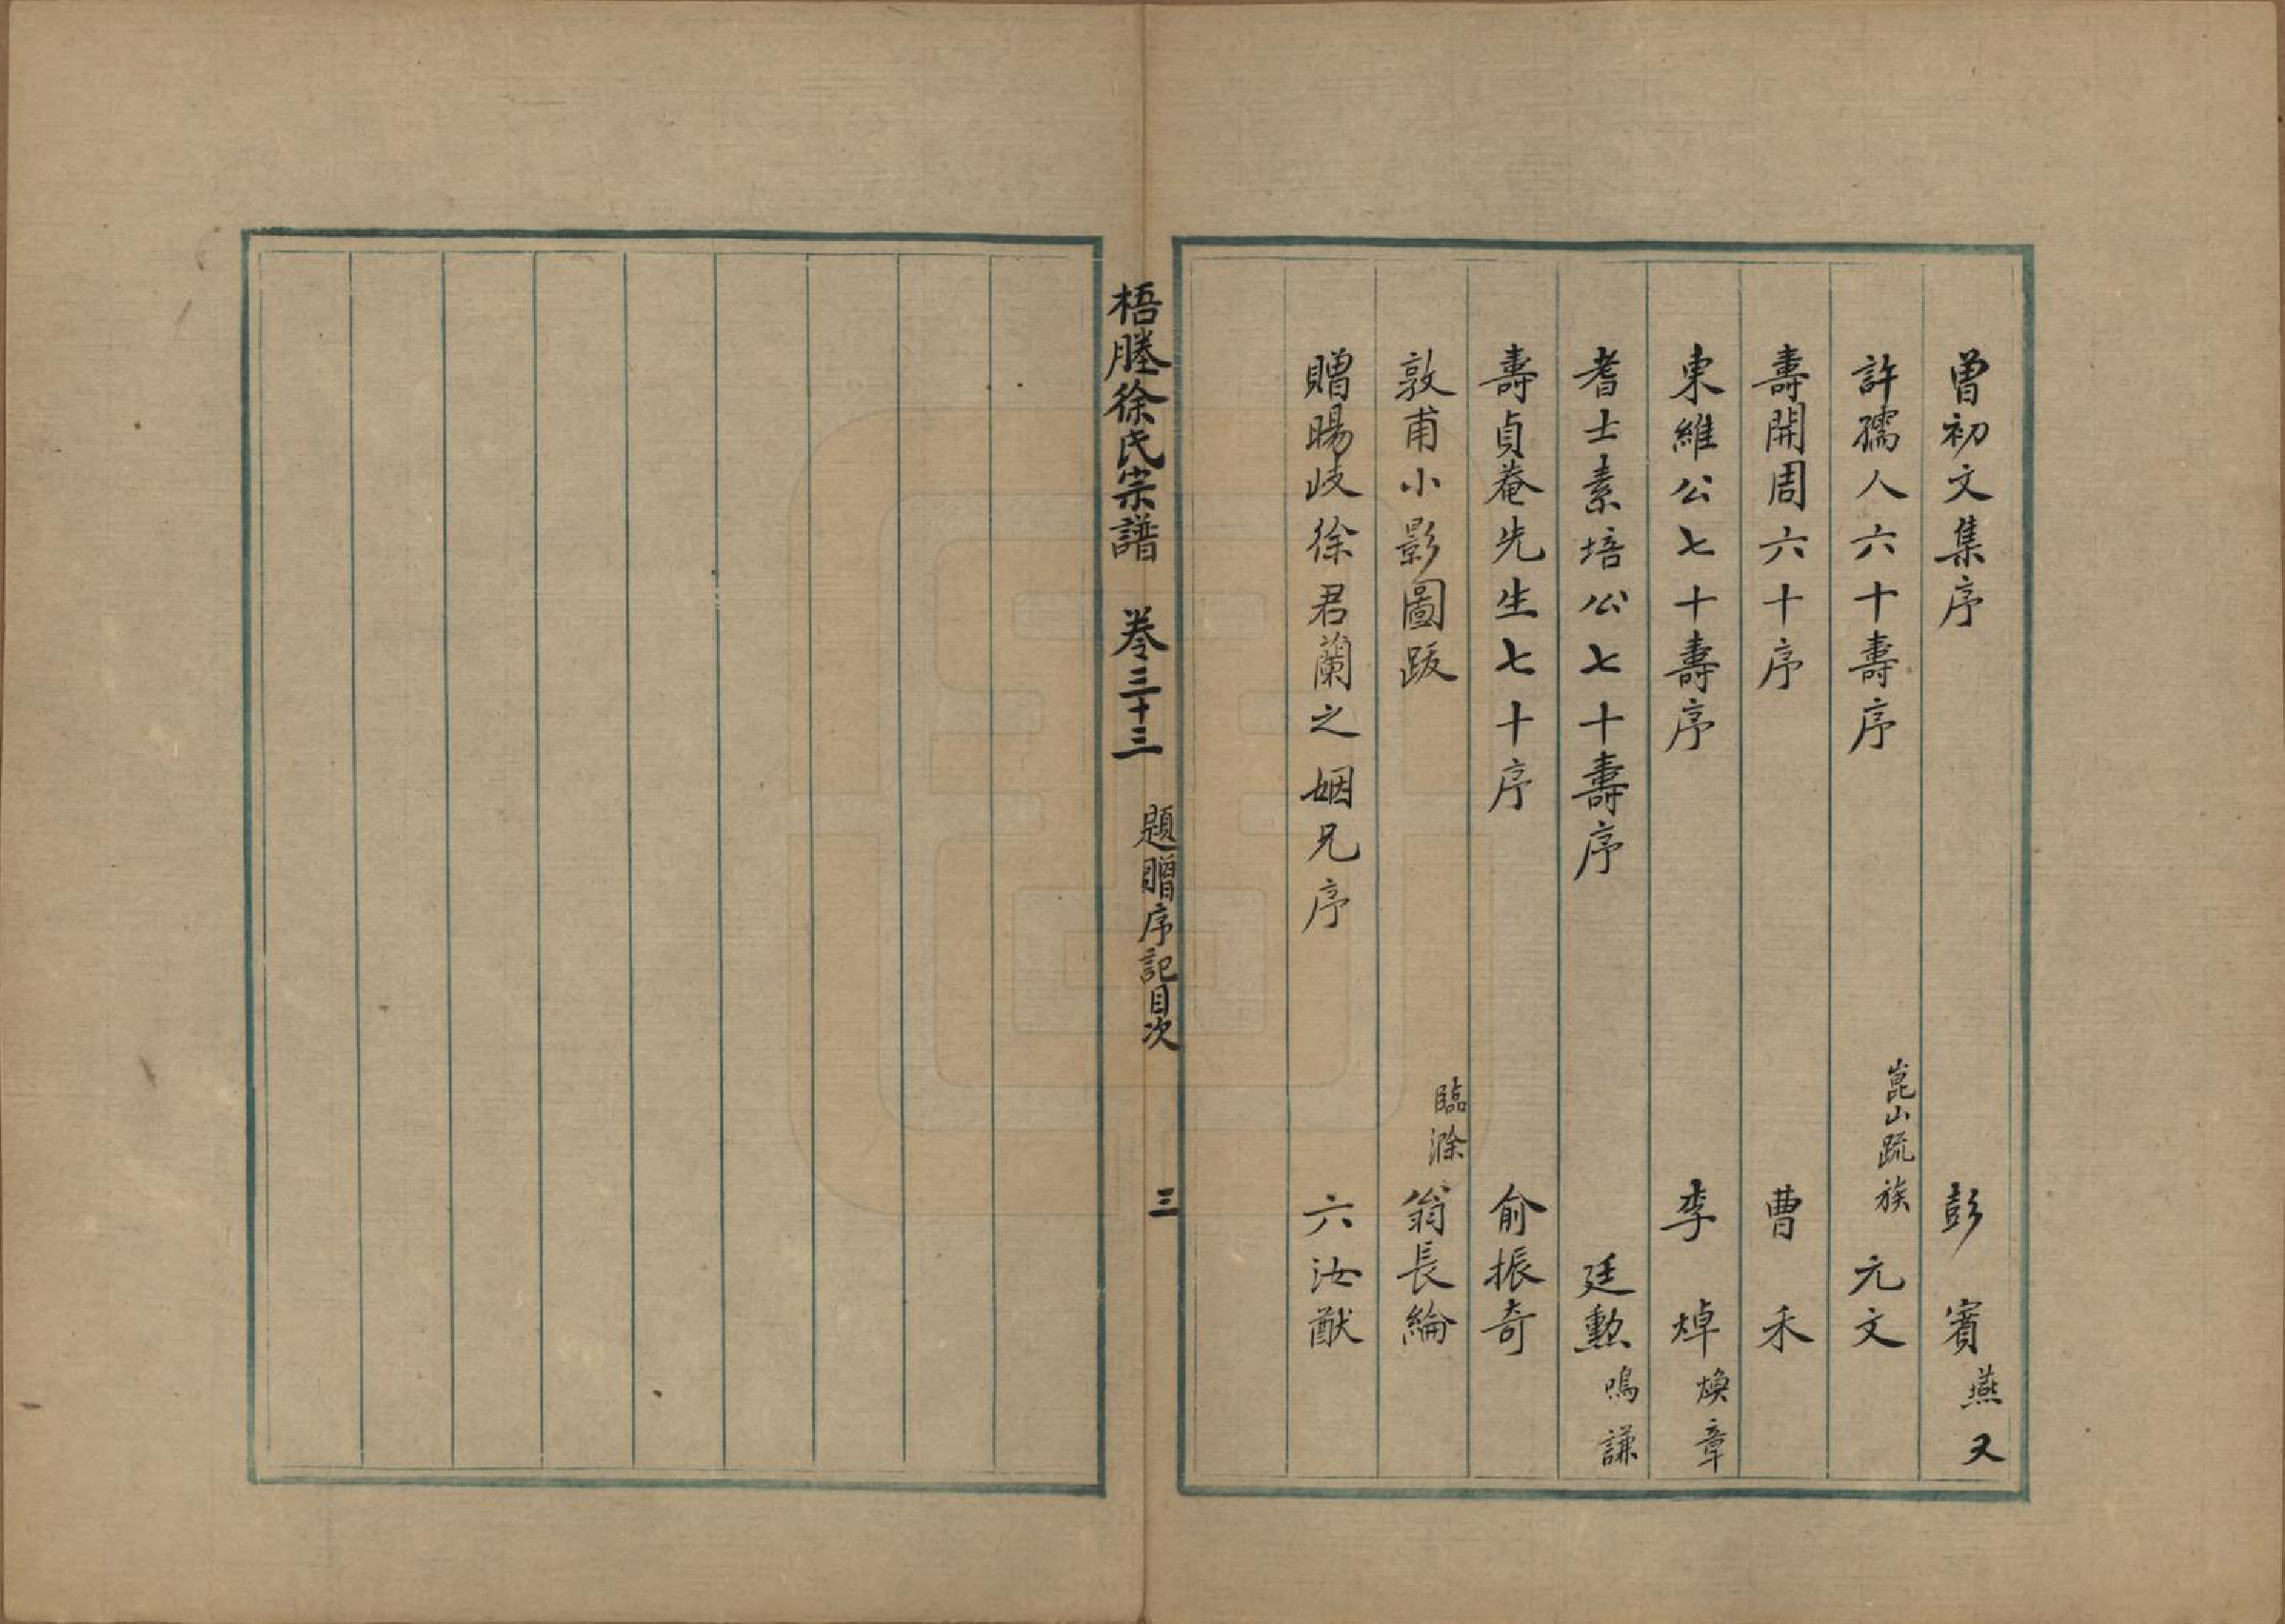 曾初文集序　彭　賓燕又
許孺人六十壽序　崑山疏族　元文
壽開周六十序　曹　禾
東維公七十壽序　李　焯煥章
耆士素培公七十壽序　廷勲鳴謙
壽貞菴先生七十序　俞振奇
敦甫小影圖跋　臨滁　翁長綸
贈暘岐徐君蘭之姻兄序　六汝猷
梧塍徐氏宗譜　卷三十三　題贈序記目次　三